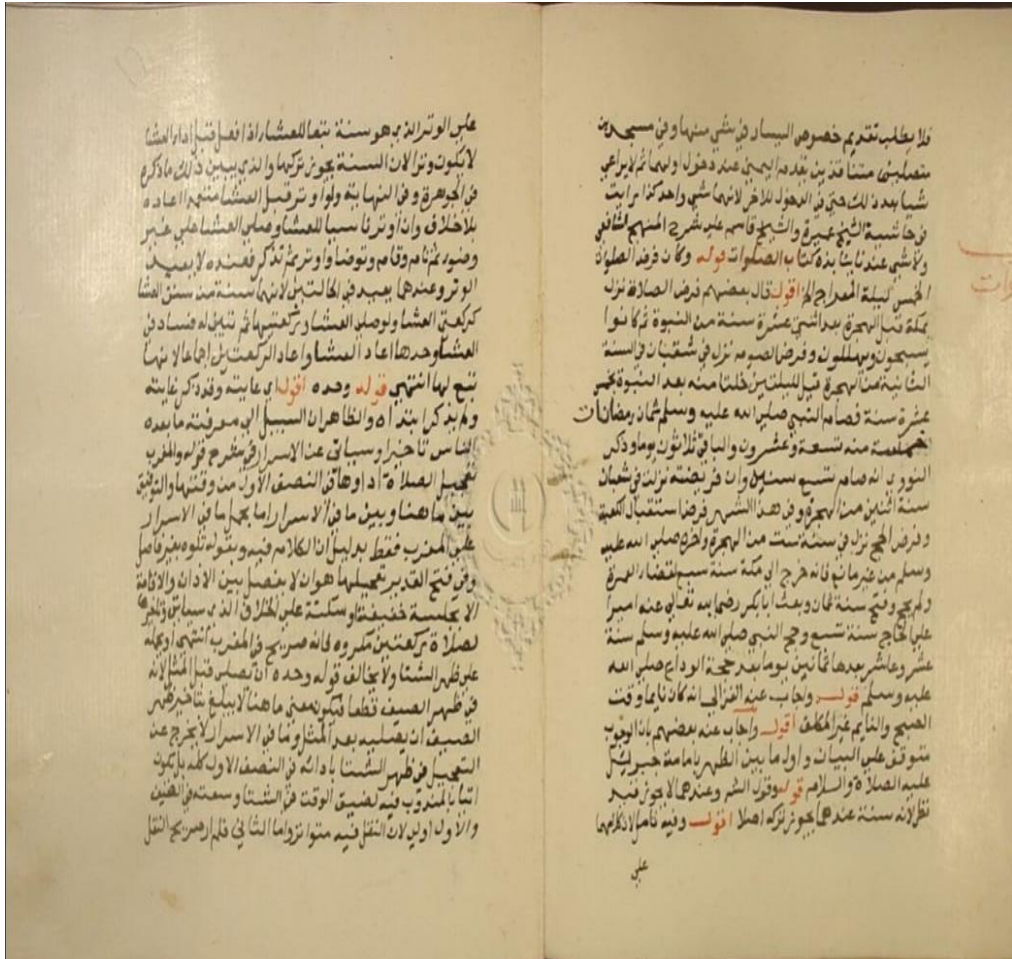 فلا يطلب تقديم خصوص اليسار في شي منها وفي مسجدين
متصلين متنافذين يقدم اليمني عند دخول اولهما ثم لا يراعي
شيا بعد ذلك حتى في الدخول للاخر لانهما شي واحد كذا رايت
في حاشية الشيخ عميرة والشيخ قاسم علي شرح المنهج الشافعي
ولا شي عندنا بنابذه كتاب الصلوات قوله وكان فرض الصلوات
الخمس ليلة المعراج الخ اقول قال بعضهم فرض الصلاة نزل
بمكة قبل الهجرة بعد اثنتي عشرة سنة من النبوة ثم كانوا
يسبحون ويهللون وفرض الصوم نزل في شعبان في السنة
الثانية من الهجرة قبل لليلتين خلتا منه بعد النبوة بخمس
عشرة سنة فصام النبي صلى الله عليه وسلم ثمان رمضانات
خمسة منه تسعة وعشرون والباقي ثلاثون يوما وذكر
النووي انه صام تسع سنين وان فريضته نزلت في شعبان
سنة اثنين من الهجرة وفي هذا الشهر فرض استقبال الكعبة
وفرض الحج نزل في سنة ست من الهجرة واخره صلى الله عليه
وسلم من غير مانع فانه خرج الى مكة سنة سبع لقضاء العمرة
ولم يحج وفتح سنة ثمان وبعث ابا بكر رضي الله تعالى عنه اميرا
علي الحاج سنة تسع وحج النبي صلى الله عليه وسلم سنة
عشر وعاشر بعدها ثمانين يوما بعد حجة الوداع صلى الله
عليه وسلم قوله واجاب عنه الغزالي انه كان نايما وقت
الصبح والنايم غير المكلف اقول واجاب عنه بعضهم بان الوجوب
متوقف علي البيان واول ما بين الظهر بامامة جبرائيل
عليه الصلاة والسلام قوله وقول الشر وعندهما لا يجوز فيه
نظر لانه سنة عندهما يجوز تركه اصلا اقول وفيه تامل لان كلامهما
علي
علي الوتر الذي هو سنة تبعا للعشاء اذا فعل قبل اداء العشا
لا يكون وترا لان السنة يجوز تركها والذي يبين ذلك ما ذكره
في الجوهرة وفي النهاية ولو اوتر قبل العشا متعمدا اعاده
بلا خلاف وان اوتر ناسيا للعشا وصلي العشا علي غير
وضوء ثم نام وقام وتوضا واوتر ثم تذكر فعنده لا يعيد
الوتر وعندهما يعيد في الحالتين لانهما سنة من سنن العشا
كركعتي العشا ولو صلى العشا وركعتيها ثم تبين له فساد في
العشا وحدها اعاد العشا واعاد الركعتين اجماعا لانها
تبع لها انتهي قوله وحده اقول اي غايته وقد ذكر غايته
ولم يذكر ابتداه والظاهر ان السبيل الى معرفته ما بعده
الناس تاخيرا وسياتي عن الاسرار في شرح قوله والمغرب
تعجيل الصلاة اداوها في النصف الاول من وقتها والتوفيق
بين ما هنا وبين ما في الاسرار اما بحمل ما في الاسرار
علي المغرب فقط بدليل ان الكلام فيه وبقوله تلوه بغير فاصل
وفي فتح القدير تعجيلها هو ان لا يفصل بين الاذان والاقامة
الا بجلسة خفيفة او سكتة علي الخلاف الذي سياتي وتاخيرها
لصلاة ركعتين مكروه فانه صريح في المغرب انتهى او بحمله
علي ظهر الشتا ولا يخالف قوله وحده ان تصلى قبل المثل لانه
في ظهر الصيف قطعا فيكون معنى ما هنا لا يبلغ بتاخير ظهر
الصيف ان يصليه بعد المثل وما في الاسرار لا يخرج عن
التعجيل في ظهر الشتا بادائه في النصف الاول كله بل يكون
اتيا بالمندوب فيه لضيق الوقت في الشتا وسعته في الصيف
والاول اولى لان النقل فيه متواتر واما الثاني فلم ار صريح النقل